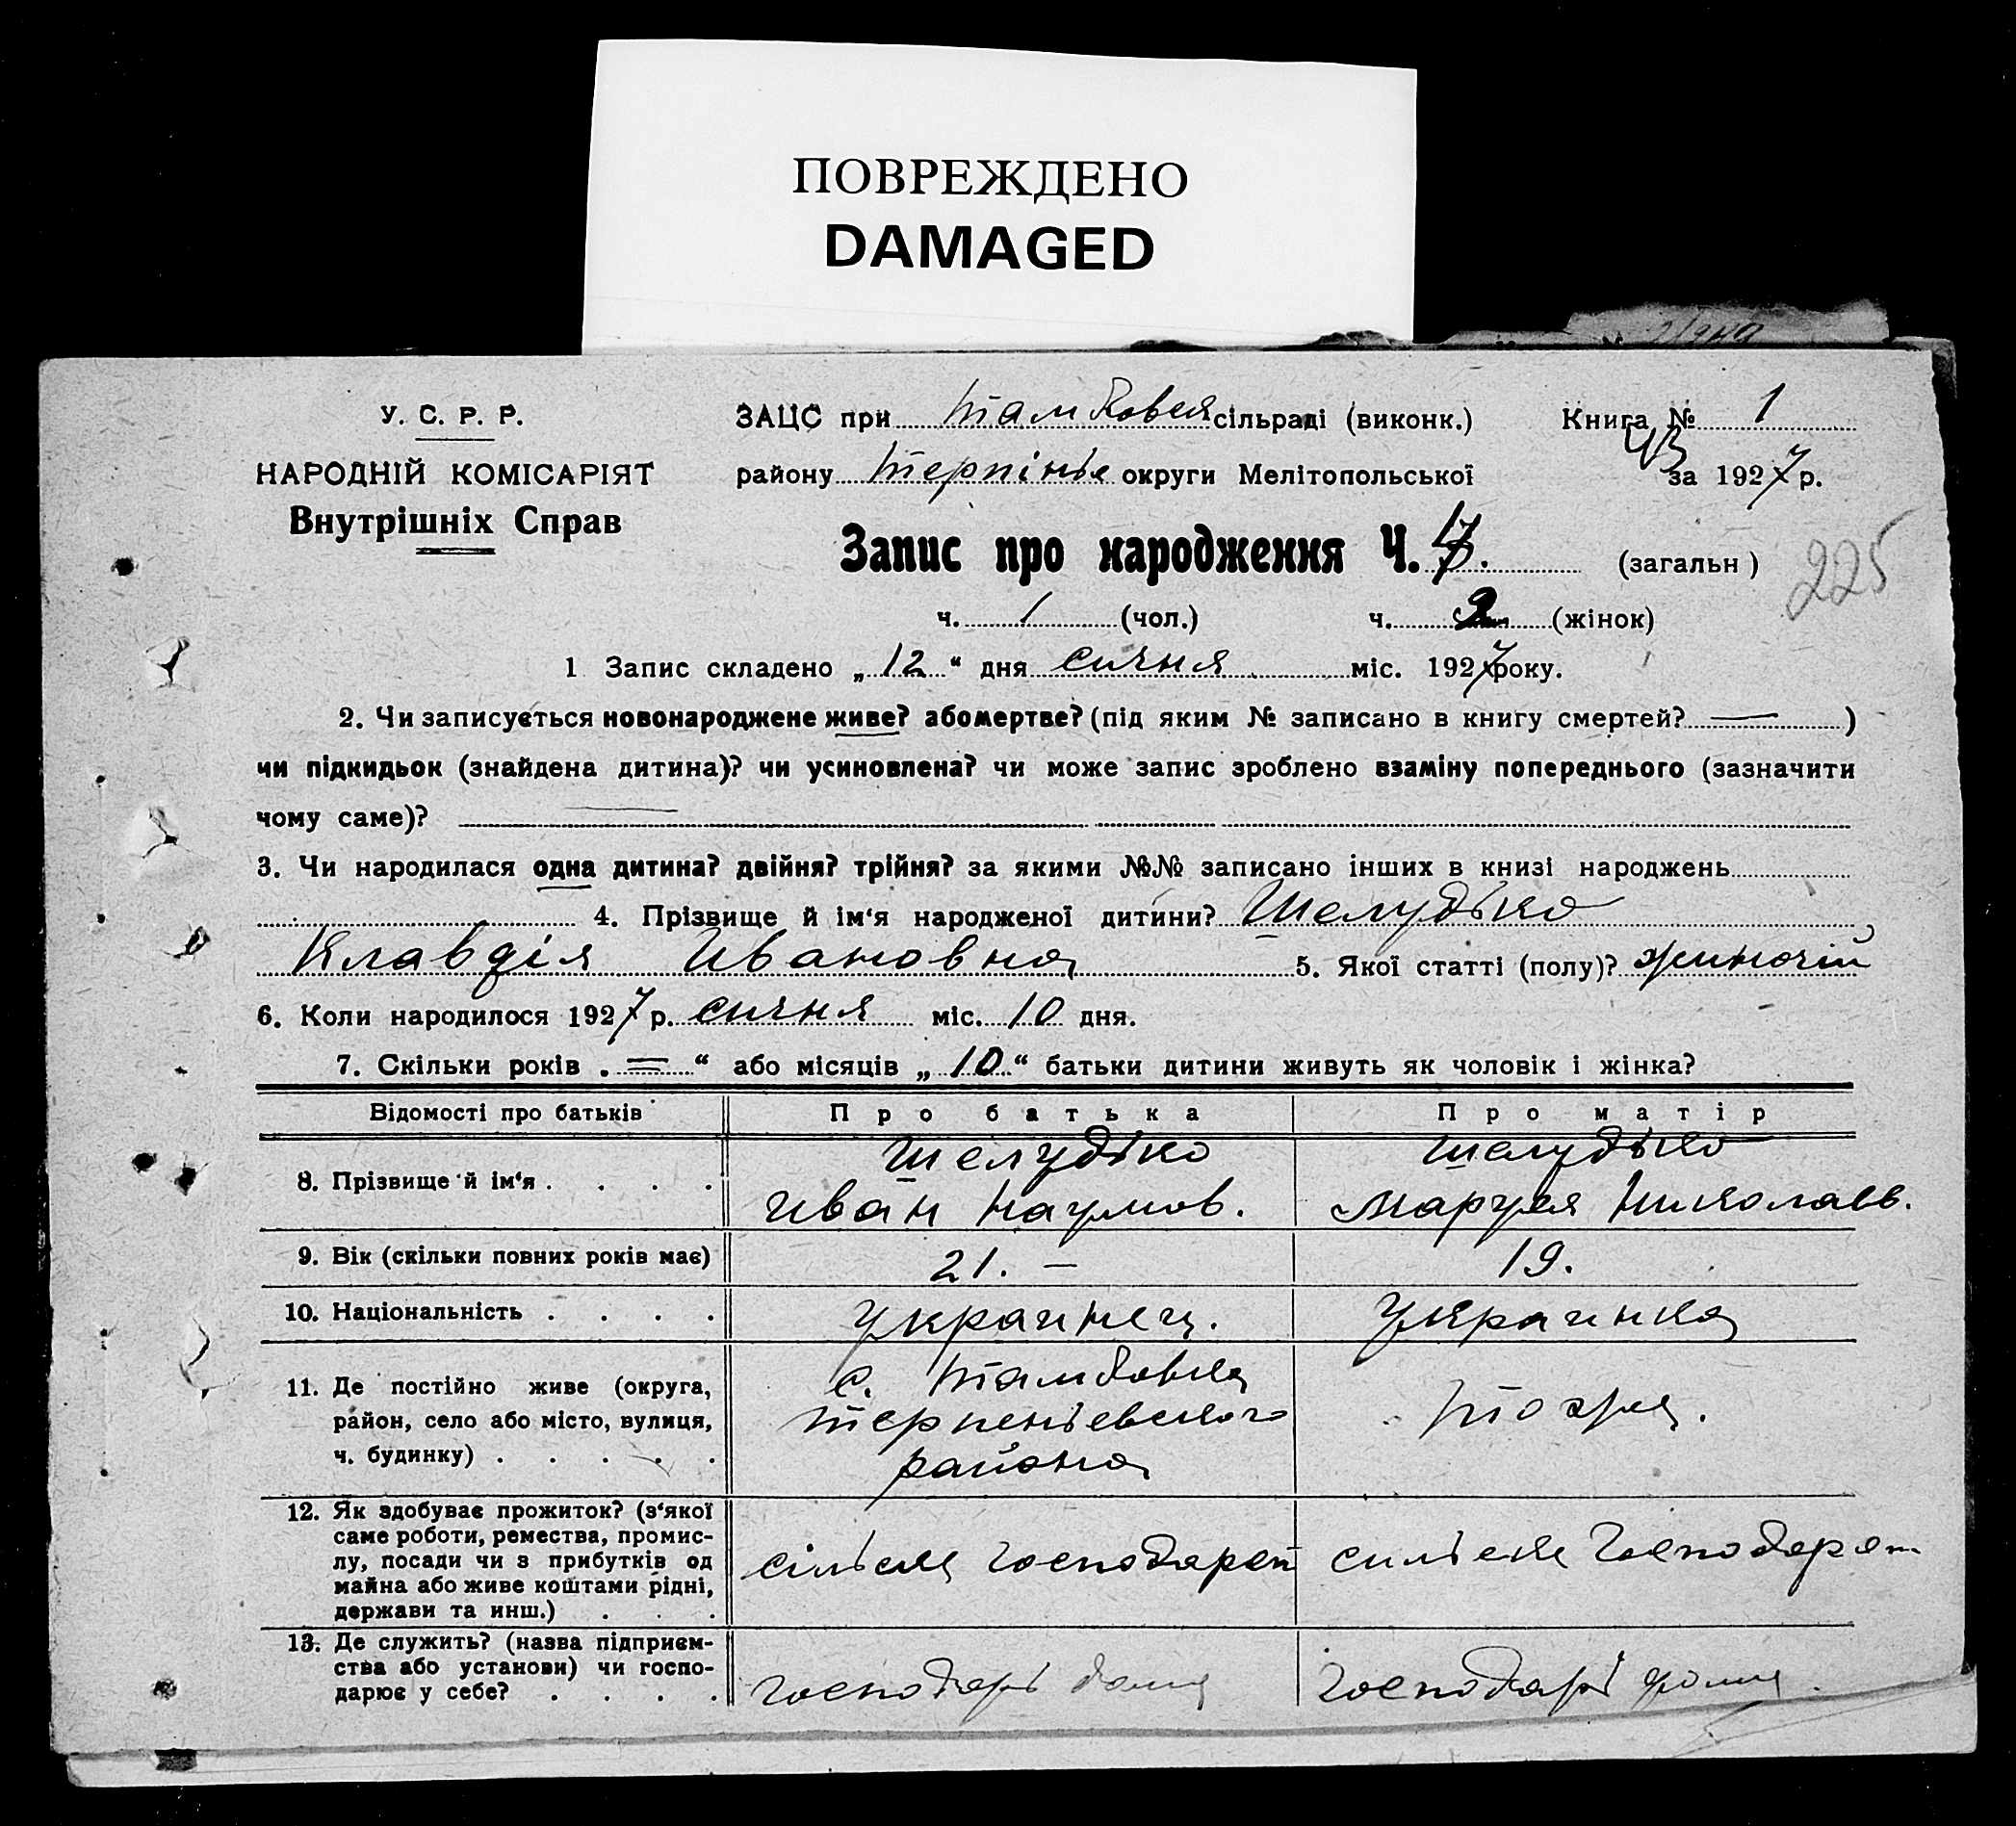 ПОВРЕЖДЕНО
DAMAGED
У. С. Р. Р.
ЗАЦС при Тамбовця сільраді (виконк.) Книга № 1
НАРОДНІЙ КОМІСАРІЯТ
району Терпіньє округи Мелітопольської за 1927 р.
Внутрішніх Справ
Запис про народження Ч. (загальн)
225
ч. 1 (чол.) ч. (жінок)
1 Запис складено „12“ дня сичня міс. 1927 року.
2. Чи записується новонароджене живе? або мертве? (під яким № записано в книгу смертей? — )
чи підкидьок (знайдена дитина)? чи усиновлена? чи може запис зроблено взаміну попереднього (зазначити
чому саме)? —
3. Чи народилася одна дитина? двійня? трійня? за якими №№ записано інших в книзі народжень
4. Прізвище й ім‘я народженої дитини? Шелудько
Клавдія Ивановна 5. Якої статті (полу)? жиночій
6. Коли народилося 1927 р. сичня міс. 10 дня.
7. Скільки років „ = “ або місяців „10“ батьки дитини живуть як чоловік і жінка?
Відомості про батьків Про батька Про матір
8. Прізвище й ім‘я . . . . Шелудько Иван Наумов. Шелудько Маруся Николаев.
9. Вік (скільки повних років має) 21. — 19.
10. Національність . . . . украинец. украинка
11. Де постійно живе (округа,
район, село або місто, вулиця,
ч. будинку) . . . . .
с. Тамбовка
Терпеньевского
района
тожуя.
12. Як здобуває прожиток? (з‘якої
саме роботи, ремества, промис-
лу, посади чи з прибутків од
майна або живе коштами рідні,
держави та инш.) . . .
13. Де служить? (назва підприєм-
ства або установи) чи госпо-
дарює у себе? . . . .
господарь дома
господарь дома.